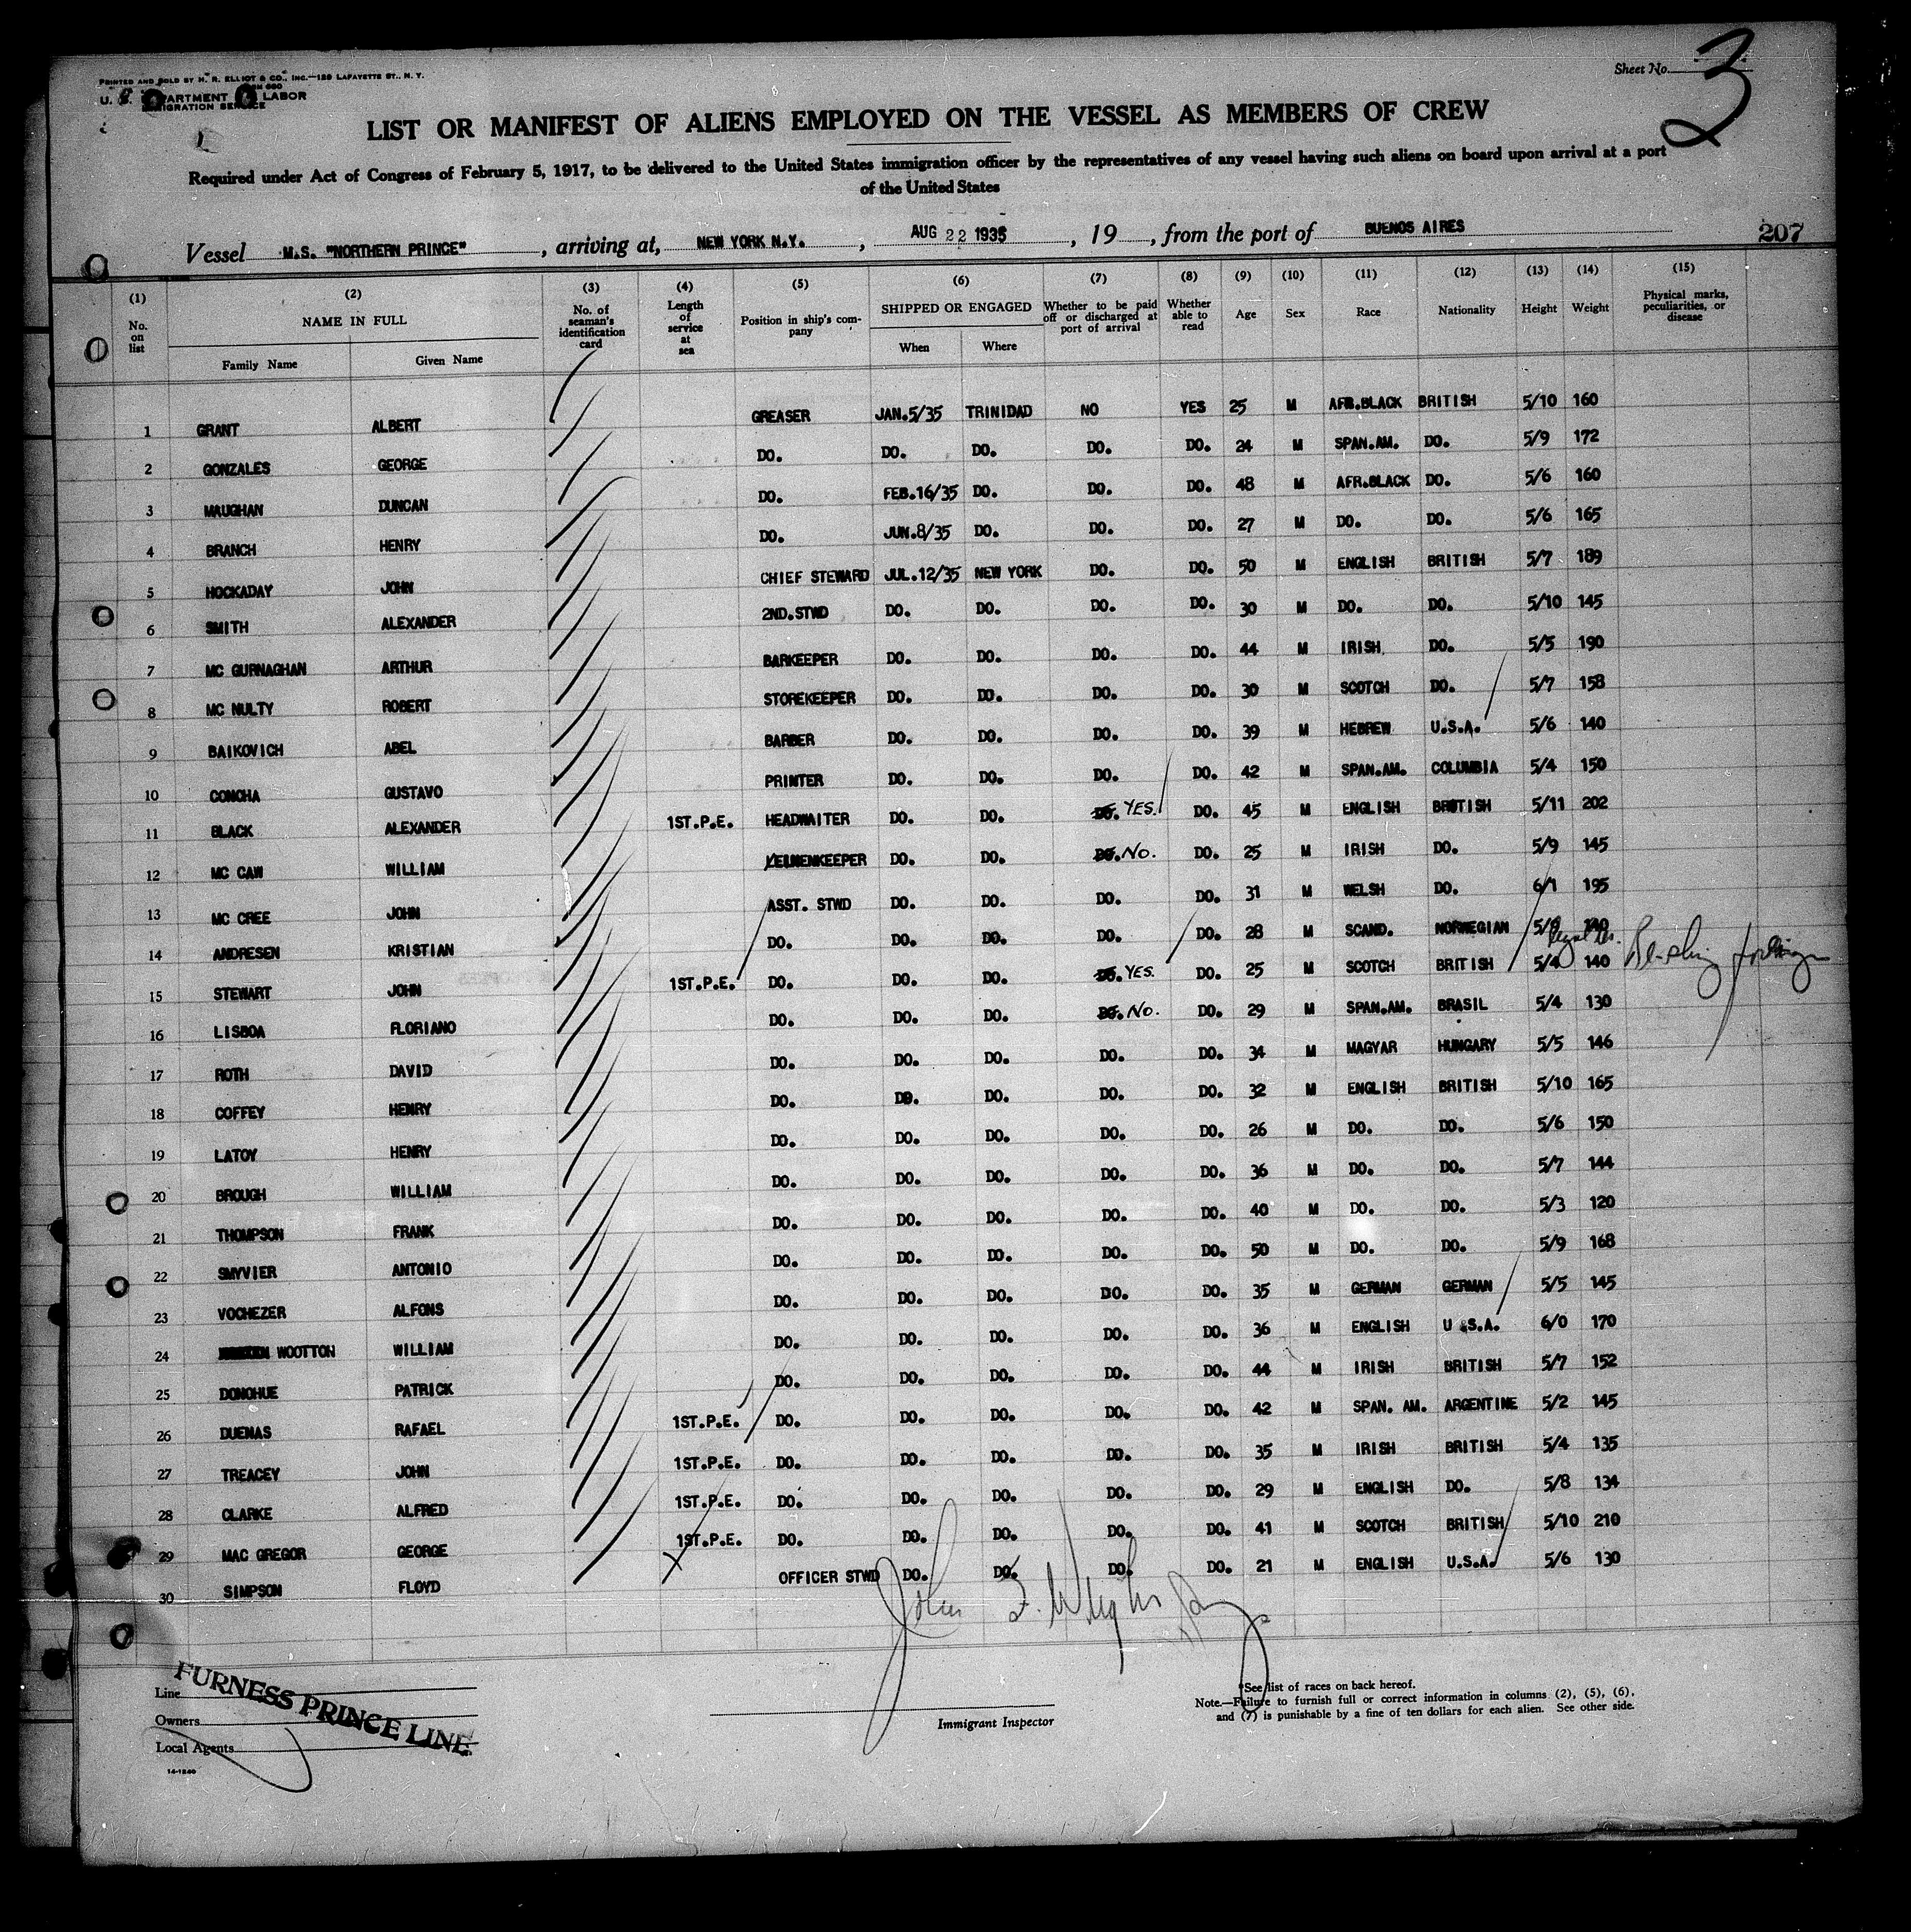 PRINTED AND SOLD BY H. R. ELLIOT & CO., INC.—129 LAFAYETTE ST., N. Y.
U. S. DEPARTMENT OF LABOR
IMMIGRATION SERVICE
Sheet No. 3
LIST OR MANIFEST OF ALIENS EMPLOYED ON THE VESSEL AS MEMBERS OF CREW
Required under Act of Congress of February 5, 1917, to be delivered to the United States immigration officer by the representatives of any vessel having such aliens on board upon arrival at a port
of the United States
Vessel M.S. "NORTHERN PRINCE", arriving at, NEW YORK N.Y., AUG 22 1935, 19, from the port of BUENOS AIRES 207
(1) No. on list (2) NAME IN FULL Family Name Given Name (3) No. of seaman's identification card (4) Length of service at sea (5) Position in ship's company (6) SHIPPED OR ENGAGED When Where (7) Whether to be paid off or discharged at port of arrival (8) Whether able to read (9) Age (10) Sex (11) Race (12) Nationality (13) Height (14) Weight (15) Physical marks, peculiarities, or disease
1 GRANT ALBERT GREASER JAN.5/35 TRINIDAD NO YES 25 M AFR.BLACK BRITISH 5/10 160
2 GONZALES GEORGE DO. DO. DO. DO. DO. 24 M SPAN.AM. DO. 5/9 172
3 MAUGHAN DUNCAN DO. FEB.16/35 DO. DO. DO. 48 M AFR.BLACK DO. 5/6 160
4 BRANCH HENRY DO. JUN.8/35 DO. DO. DO. 27 M DO. DO. 5/6 165
5 HOCKADAY JOHN CHIEF STEWARD JUL.12/35 NEW YORK DO. DO. 50 M ENGLISH BRITISH 5/7 189
6 SMITH ALEXANDER 2ND.STWD DO. DO. DO. DO. 30 M DO. DO. 5/10 145
7 MC GURNAGHAN ARTHUR BARKEEPER DO. DO. DO. DO. 44 M IRISH DO. 5/5 190
8 MC NULTY ROBERT STOREKEEPER DO. DO. DO. DO. 30 M SCOTCH DO. 5/7 158
9 BAIKOVICH ABEL BARBER DO. DO. DO. DO. 39 M HEBREW U.S.A. 5/6 140
10 CONCHA GUSTAVO PRINTER DO. DO. DO. DO. 42 M SPAN.AM. COLUMBIA 5/4 150
11 BLACK ALEXANDER 1ST.P.E. HEADWAITER DO. DO. DO. YES. DO. 45 M ENGLISH BRITISH 5/11 202
12 MC CAW WILLIAM DO. DO. DO. No. DO. 25 M IRISH DO. 5/9 145
13 MC CREE JOHN ASST. STWD DO. DO. DO. DO. 31 M WELSH DO. 6/1 195
14 ANDRESEN KRISTIAN DO. DO. DO. DO. DO. 28 M SCAND. NORWEGIAN 140
15 STEWART JOHN 1ST.P.E. DO. DO. DO. DO. YES. DO. 25 M SCOTCH BRITISH 5/4 140
16 LISBOA FLORIANO DO. DO. DO. DO. No. DO. 29 M SPAN.AM. BRASIL 5/4 130
17 ROTH DAVID DO. DO. DO. DO. DO. 34 M MAGYAR HUNGARY 5/5 146
18 COFFEY HENRY DO. DO. DO. DO. DO. 32 M ENGLISH BRITISH 5/10 165
19 LATOY HENRY DO. DO. DO. DO. DO. 26 M DO. DO. 5/6 150
20 BROUGH WILLIAM DO. DO. DO. DO. DO. 36 M DO. DO. 5/7 144
21 THOMPSON FRANK DO. DO. DO. DO. DO. 40 M DO. DO. 5/3 120
22 SMYVIER ANTONIO DO. DO. DO. DO. DO. 50 M DO. DO. 5/9 168
23 VOCHEZER ALFONS DO. DO. DO. DO. DO. 35 M GERMAN GERMAN 5/5 145
24 WOOTTON WILLIAM DO. DO. DO. DO. DO. 36 M ENGLISH U.S.A. 6/0 170
25 DONOHUE PATRICK DO. DO. DO. DO. DO. 44 M IRISH BRITISH 5/7 152
26 DUENAS RAFAEL 1ST.P.E. DO. DO. DO. DO. DO. 42 M SPAN. AM. ARGENTINE 5/2 145
27 TREACEY JOHN 1ST.P.E. DO. DO. DO. DO. DO. 35 M IRISH BRITISH 5/4 135
28 CLARKE ALFRED 1ST.P.E. DO. DO. DO. DO. DO. 29 M ENGLISH DO. 5/8 134
29 MAC GREGOR GEORGE 1ST.P.E. DO. DO. DO. DO. DO. 41 M SCOTCH BRITISH 5/10 210
30 SIMPSON FLOYD OFFICER STWD DO. DO. DO. DO. 21 M ENGLISH U.S.A. 5/6 130
John F.
Line
Owners
Local Agents
FURNESS PRINCE LINE
14-1240
Immigrant Inspector
*See list of races on back hereof.
Note.—Failure to furnish full or correct information in columns (2), (5), (6),
and (7) is punishable by a fine of ten dollars for each alien. See other side.